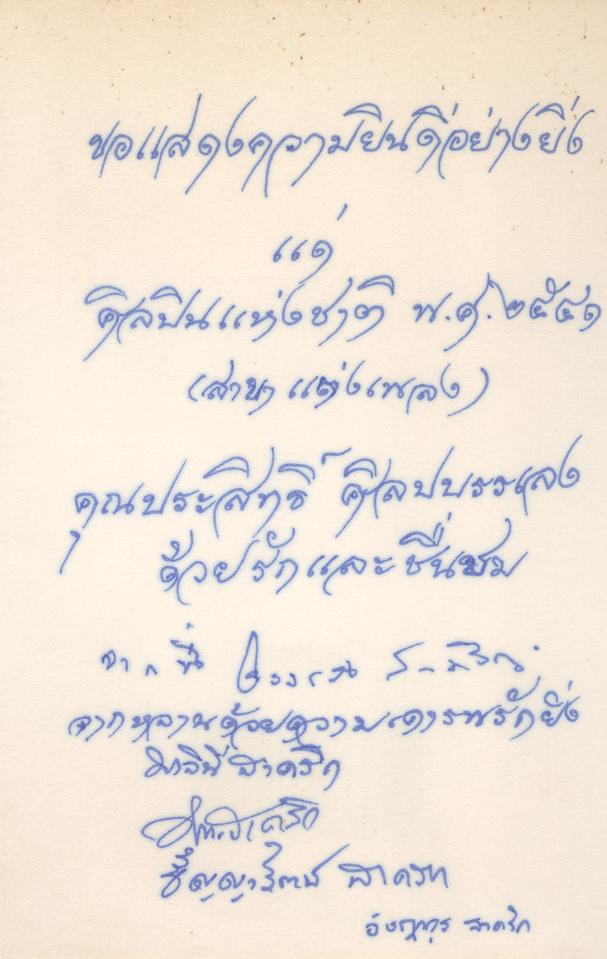 ขอแสดงความยินดีอย่างยิ่ง
แด่
ศิลปินแห่งชาติ พ.ศ. ๒๕๔๑
(สาขา แต่งเพลง)
คุณประสิทธิ์ ศิลปบรรเลง
ด้วยรักและชื่นชม
จาก พี่
จากหลานด้วยความเคารพรักยิ่ง
มาลินี สาคริก
สาคริก
สาคริก